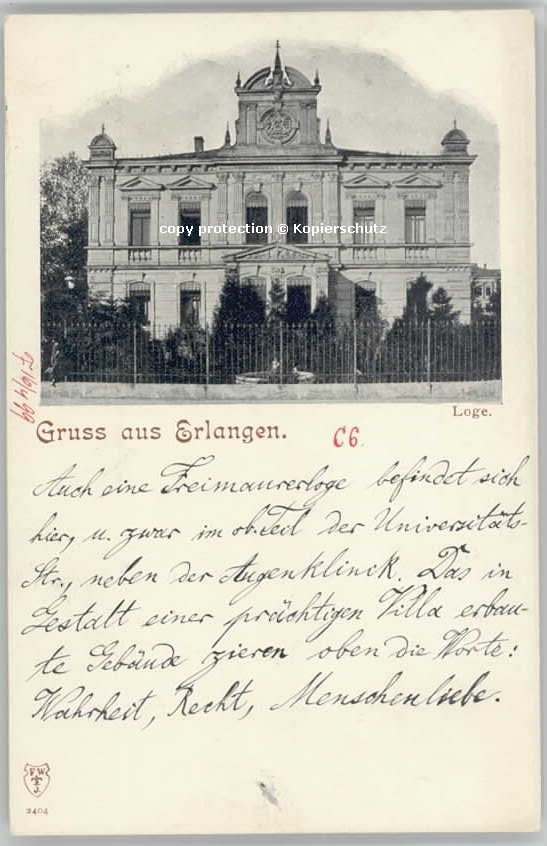 copy protection © Kopierschutz
Loge.
Gruss aus Erlangen.
C6.
Auch eine Freimaurerloge befindet sich
hier, u. zwar im ob. Teil der Universitäts-
Str., neben der Augenklinik. Das in
Gestalt einer prächtigen Villa erbau-
te Gebäude zieren oben die Worte:
Wahrheit, Recht, Menschenliebe.
F W
J.
2404